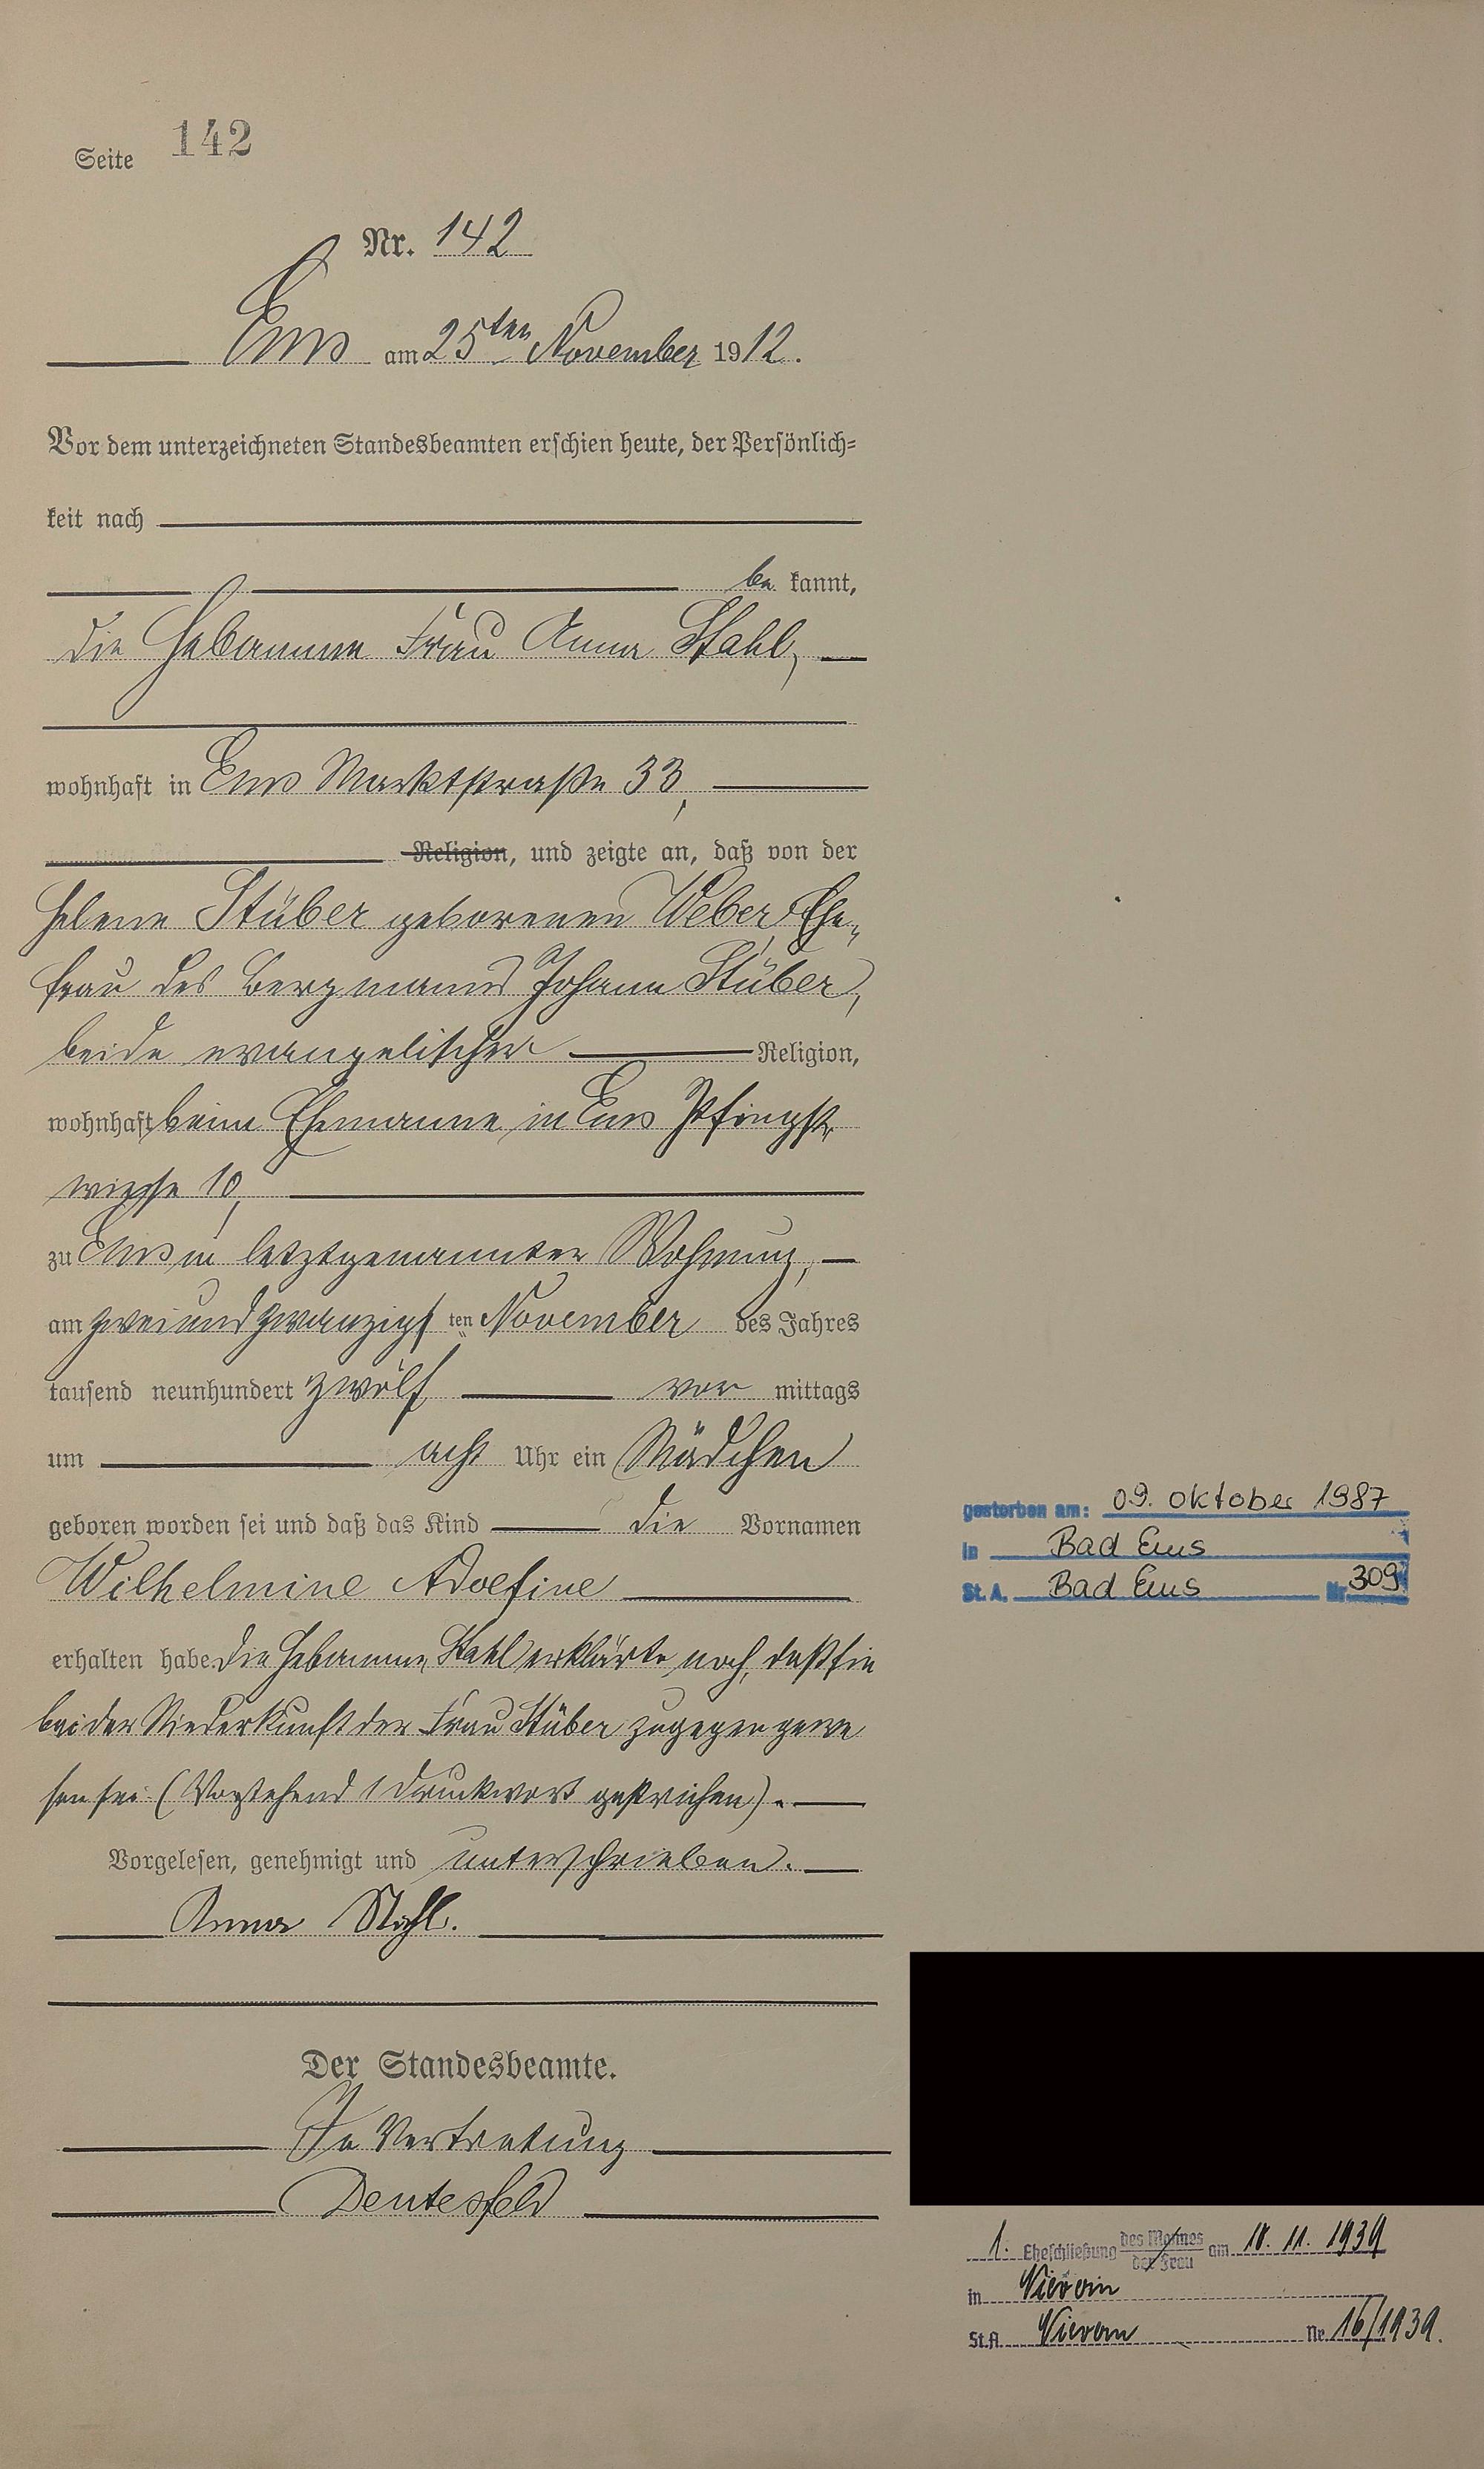 Seite 142
Nr. 142
Ems am 25ten November 1912.
Vor dem unterzeichneten Standesbeamten erschien heute, der Persönlich=
keit nach
be kannt,
die Hebamme Frau Anna Stahl,
wohnhaft in Ems Marktstraße 33,
Religion, und zeigte an, daß von der
Helene Stüber geborenen Weber, Ehe„
frau des Bergmanns Johann Stüber,
beide evangelischer Religion,
wohnhaft beim Ehemanne in Ems Pfingst
wiese 10,
zu Ems in letztgenannter Wohnung,
am zweiundzwanzigsten November des Jahres
tausend neunhundert zwölf vor mittags
um acht Uhr ein Mädchen
geboren worden sei und daß das Kind die Vornamen
Wilhelmine Adolfine
erhalten habe. Die Hebamme Stahl erklärte noch, daß sie
bei der Niederkunft der Frau Stüber zugegen gewe
sen sei. (Vorstehend 1 Druckwort gestrichen).
Vorgelesen, genehmigt und unterschrieben.
Anna Stahl.
Der Standesbeamte.
In Vertretung
Deutesfeld
gestorben am: 09. Oktober 1987
in Bad Ems
St. A. Bad Ems Nr. 309
1. Eheschließung des Mannes am 18. 11. 1939
der Frau
in Nievern
St.A. Nievern Nr. 16/1939.